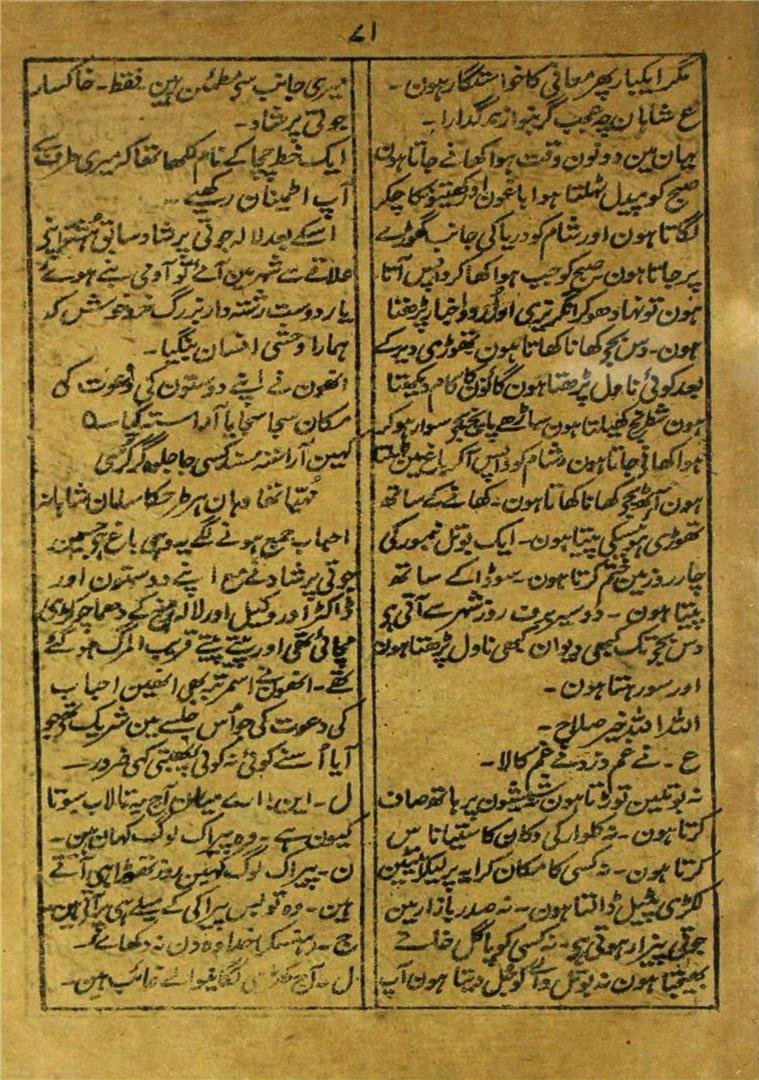 ۷۱
مگر ایکبار پھر معافی کا خواستگار ہون ۔
ع شاہان چہ عجب گر بنوازند گدارا ۔
یہان مین دونون وقت ہوا کھانے جاتا ہون
صبح کو پیدل ٹہلتا ہوا باغون اور کھیتونکا چکر
لگاتا ہون اور شام کو دریا کی جانب گھوڑے
پر جاتا ہون ۔ صبح کو جب ہوا کھا کر واپس آتا
ہون تو نہا دھو کر انگریزی اور اُردو اخبار پڑھتا
ہون ۔ دس بجے کھانا کھاتا ہون تھوڑی دیر کے
بعد کوئی ناول پڑھتا ہون گانوُن کا کام دیکھتا
ہون شطرنج کھیلتا ہون ساڑھے پانچ بجے سوار ہو کر
ہوا کھانے جاتا ہون شام کو واپس آکر باغ مین ٹہلتا
ہون آٹھ بجے کھانا کھاتا ہون ۔ کھانے کے ساتھ
تھوڑی ہوِسکی پیتا ہون ۔ ایک بوتل نمبور کی
چار روز مین ختم کرتا ہون ۔ سوڈا کے ساتھ
پیتا ہون ۔ دو سیر برف روز شہر سے آتی ہی
دس بجے تک کبھی دیوان کبھی ناول پڑھتا ہون
اور سو رہتا ہون ۔
اللہ اللہ خیر صلاح ۔
ع ۔ نے غم دزد نے غم کالا ۔
نہ بوتلین توڑتا ہون نہ شیشون پر ہاتھ صاف
کرتا ہون ۔ نہ کلوار کی دکان کا ستیاناس
کرتا ہون ۔ نہ کسی کا مکان کرایہ پر لیکر
لکڑی پٹیل ڈالتا ہون ۔ نہ صدر بازار مین
جوتی پیزار ہوتی ہی ۔ نہ کسی کو پاگل خانے
بھیجتا ہون نہ بوتل والے کو جُل دیتا ہون آپ
میری جانب سی مطمئن رہین ۔ فقط ۔ خاکسار
جوتی پرشاد ۔
ایک خط چچا کے نام لکھا تھا کہ میری طرف سے
آپ اطمینان رکھیے ۔
اسکے بعد لالہ جوتی پرشاد سابق اپنے
علاقے سے شہر مین آئے تو آدمی بنے ہوئے
یار دوست رشتہ دار بزرگ خرد خوش کہ
ہمارا وحشی انسان بنگیا ۔
انھون نے اپنے دوستون کی دعوت کی
مکان سجا سجایا آراستہ کیا ۔
کہین آراستہ مسند کسی جا جلوہ گر کرسی
مُہیّا تھا وہان ہر طرحکا سامان شاہانہ
احباب جمع ہونے لگے یہ وہی باغ ہی جسمین
جوتی پرشاد نے مع اپنے دوستون اور
ڈاکٹر اور وکیل اور لالہ کے دھما چوکڑی
مچائی تھی اور پیتے پیتے قریب المرگ ہو گئے
تھے ۔ انھون نے اسمرتبہ بھی انھین احباب
کی دعوت کی جو اُس جلسے مین شریک تھے جو
آیا اُسنے کوئی نہ کوئی پھبتی کہی ضرور ۔
ل ۔ این ! ارے میان آج یہ تالاب سوتا
کیون ہے ۔ وہ پیراک لوگ کہان ہین ۔
ن ۔ پیراک لوگ کہین روز تھوڑا ہی آتے
ہین ۔ وہ تو بس پیراکی کے میلے ہی پر آتے ہین ۔
ج ۔ (ہنسکر) خدا وہ دن نہ دکھائے ۔
ل ۔ آج لگانیوالے غائب ہین ۔